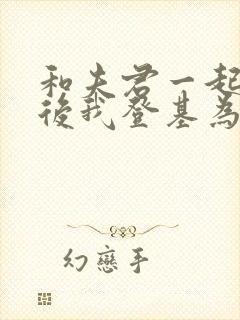 和夫君一起
後我登基為
幻戀手